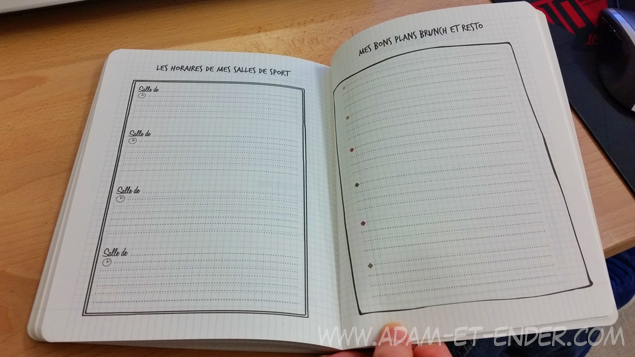 LES HORAIRES DE MES SALLES DE SPORT
Salle de
Salle de
Salle de
Salle de
MES BONS PLANS BRUNCH ET RESTO
WWW.ADAM-ET-ENDER.COM